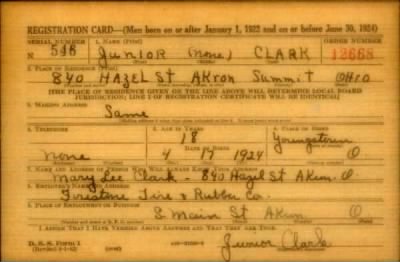 REGISTRATION CARD—(Men born on or after January 1, 1922 and on or before June 30, 1924)
SERIAL NUMBER 1. NAME (Print) ORDER NUMBER
N 546 JUNIOR (none) CLARK 12668
2. PLACE OF RESIDENCE (Print)
840 HAZEL St AKron Summit OHIO
[THE PLACE OF RESIDENCE GIVEN ON THE LINE ABOVE WILL DETERMINE LOCAL BOARD
JURISDICTION; LINE 2 OF REGISTRATION CERTIFICATE WILL BE IDENTICAL]
3. MAILING ADDRESS
Same
4. TELEPHONE 5. AGE IN YEARS 6. PLACE OF BIRTH
18 Youngstown
DATE OF BIRTH
none 4 17 1924 O
7. NAME AND ADDRESS OF PERSON WHO WILL ALWAYS KNOW YOUR ADDRESS
Mary Lee Clark - 840 Hazel St Akron. O
8. EMPLOYER'S NAME AND ADDRESS
Firestone Tire & Rubber Co.
9. PLACE OF EMPLOYMENT OR BUSINESS
S. Main St Akron O
I AFFIRM THAT I HAVE VERIFIED ABOVE ANSWERS AND THAT THEY ARE TRUE.
D. S. S. Form 1
Junior Clark